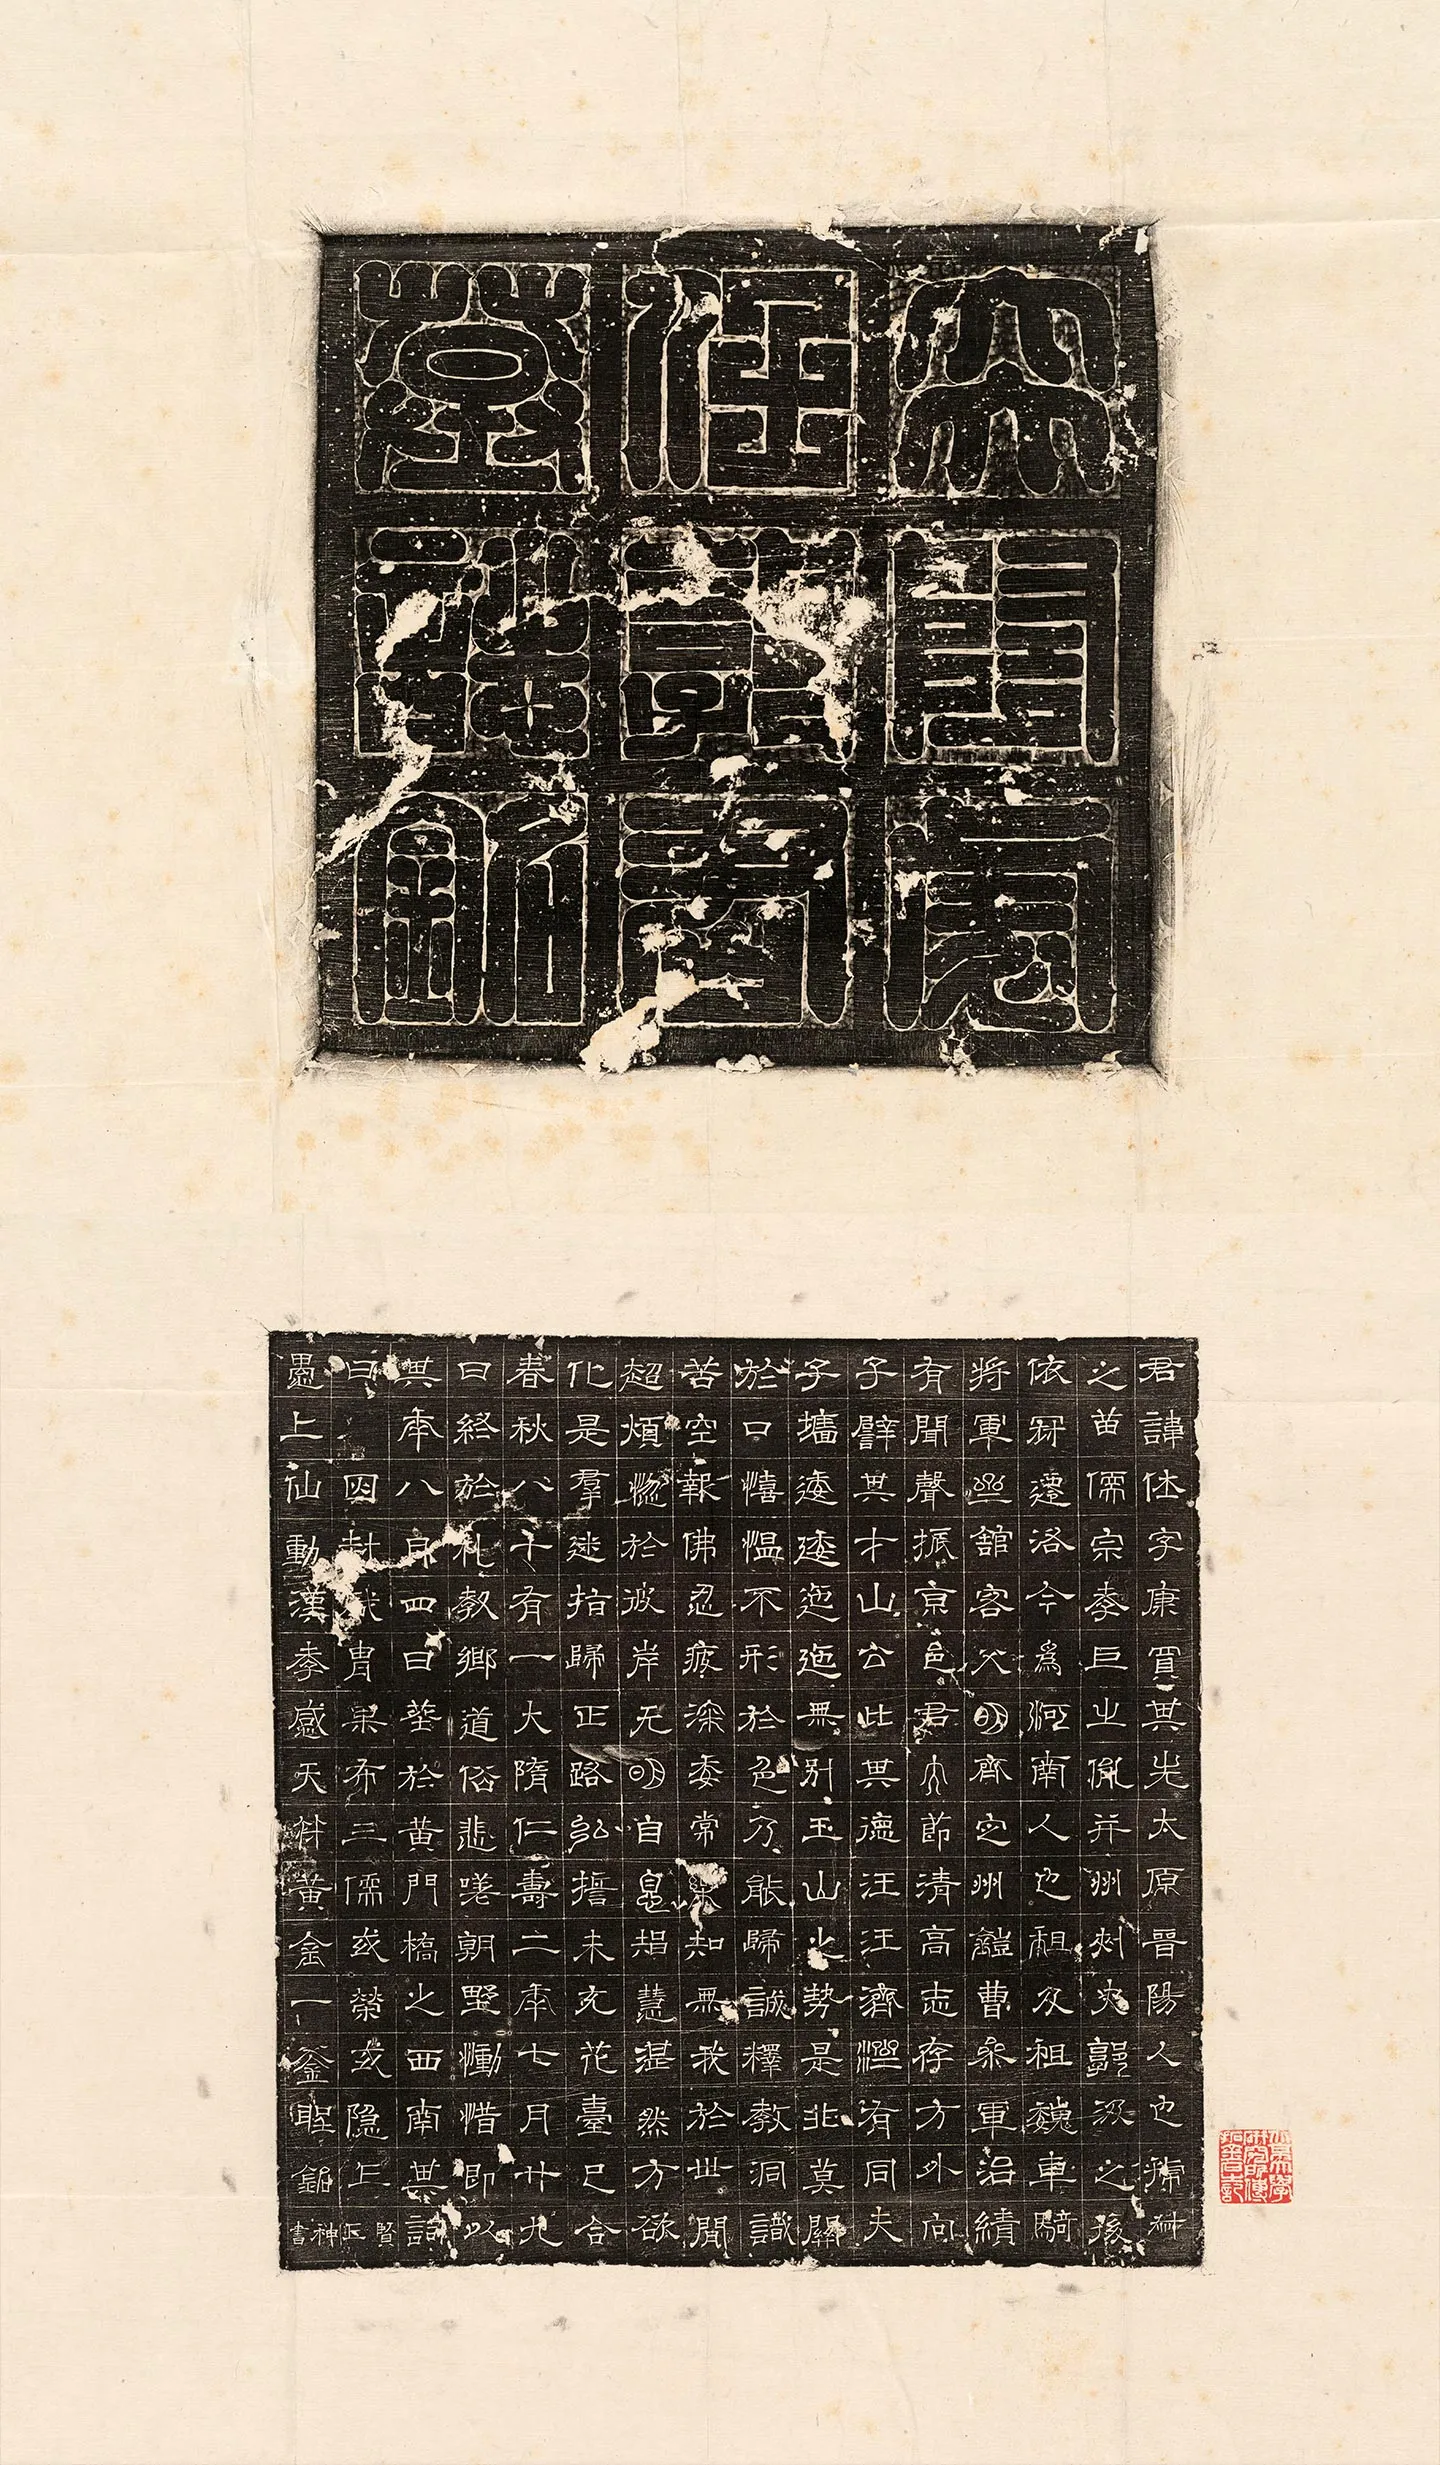 君諱休字康買其先太原晉陽人也號叔
之苗儒宗季巨之胤并州刺史郭汲之後
依冠遷洛今為河南人也祖及祖魏車騎
將軍館客父明齊定州鎧曹參軍治績
有聞聲振京邑君大節清高志存方外向
子譬其才山公比其德汪汪濟濟有同夫
子墻逶逶迤迤無別玉山之勢是非莫關
於口憘愠不形於色乃能歸誠釋教洞識
苦空報佛忍疲深委常樂知無我於世間
超煩惚於彼岸无明自息智慧湛然方欲
化是羣迷指歸正路弘誓未充花臺已合
春秋八十有一大隋仁壽二年七月廿九
日終於札教鄉道俗悲嗟朝野慟惜即以
其年八月四日葬於黃門橋之西南其詞
曰因封胄果布三儒或榮或隱上賢匹
愚上仙動漢季感天黃金一釜聖銘神書